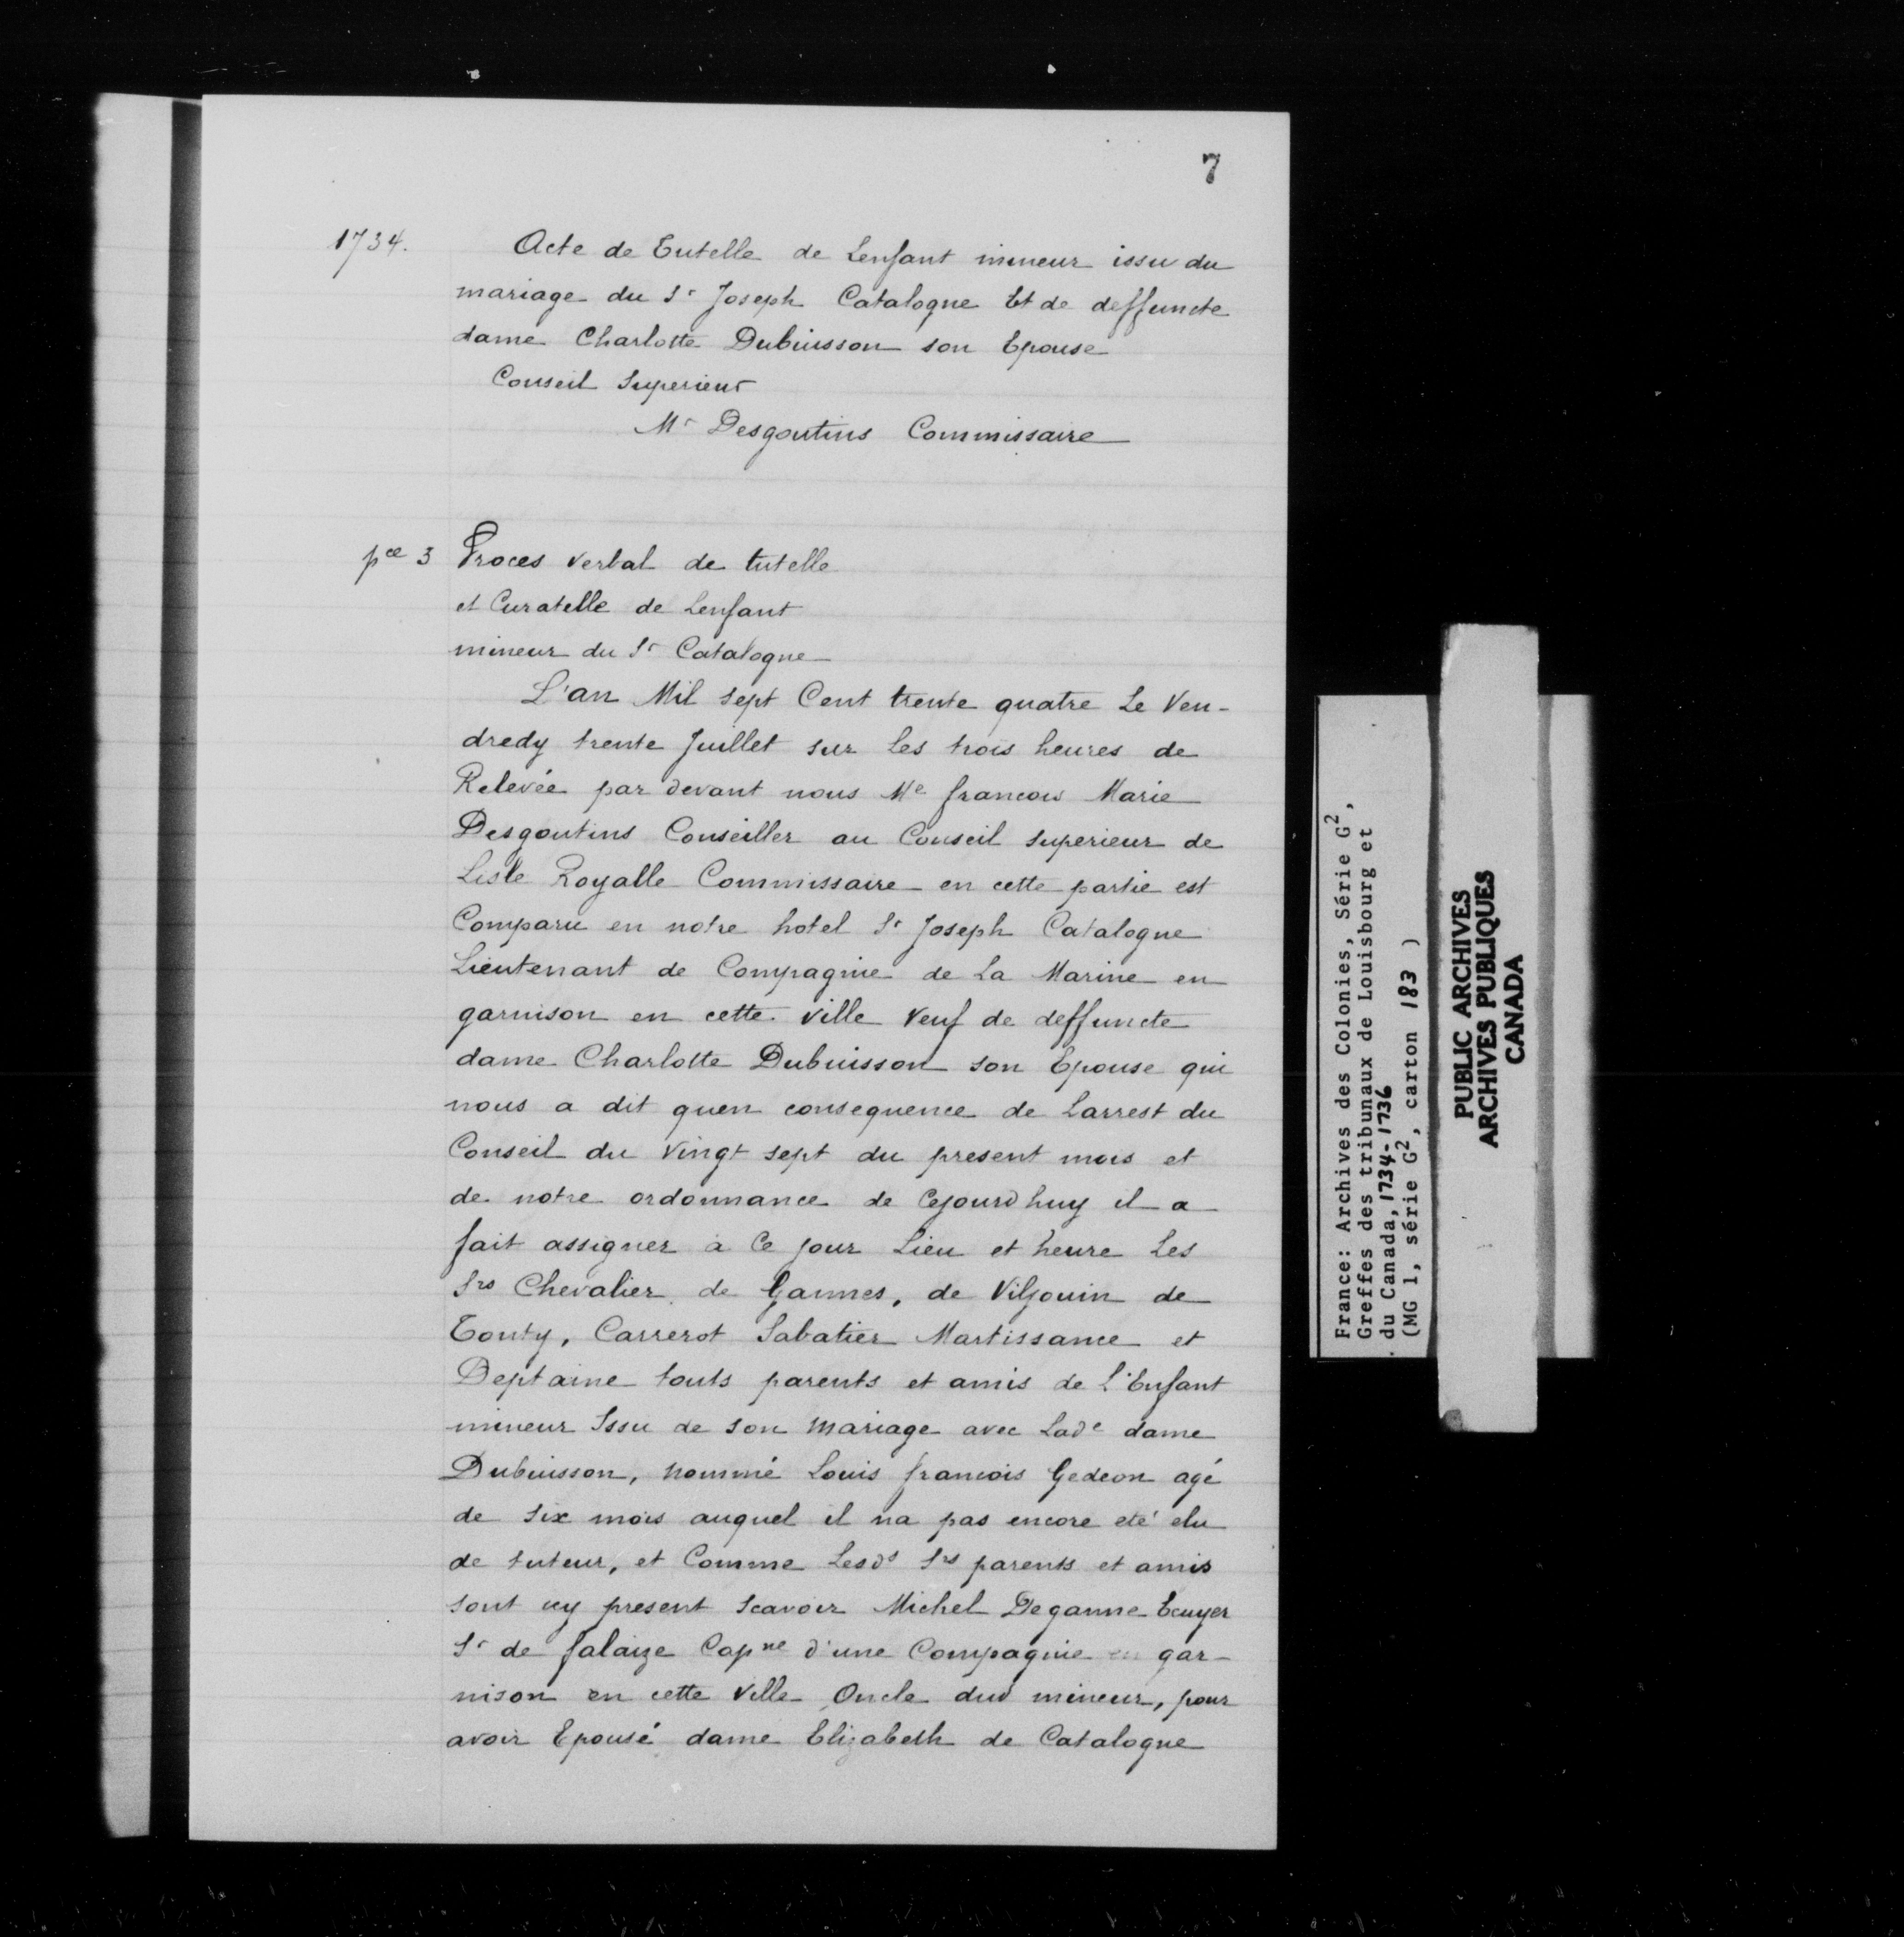 7
1734.
Acte de Tutelle de Lenfant mineur issu du
mariage du Sr Joseph Catalogne Et de deffuncte
dame Charlotte Dubuisson son Epouse
Conseil Superieur
Mr Desgoutins Commissaire
pce 3 Proces verbal de tutelle
et Curatelle de Lenfant
mineur du Sr Catalogne
L'an Mil sept Cent trente quatre Le Ven-
dredy trente Juillet sur Les trois heures de
Relevée par devant nous Me francois Marie
Desgoutins Conseiller au Conseil superieur de
Lisle Royalle Commissaire en cette partie est
Comparu en notre hotel Sr Joseph Catalogne
Lieutenant de Compagnie de La Marine en
garnison en cette ville Veuf de deffuncte
dame Charlotte Dubuisson son Epouse qui
nous a dit quen consequence de Larrest du
Conseil du Vingt sept du present mois et
de notre ordonnance de Cejourdhuy il a
fait assigner à Ce jour Lieu et heure Les
Srs Chevalier de Gannes, de Viljouin de
Tonty, Carrerot Sabatier Martissance et
Deptaine touts parents et amis de L'Enfant
mineur Issu de son mariage avec Lade dame
Dubuisson, nommé Louis francois Gedeon agé
de six mois auquel il na pas encore eté elu
de tuteur, et Comme Lesds Srs parents et amis
sont icy present scavoir Michel Deganne Ecuyer
Sr de falaize Capne d'une Compagnie en gar-
nison en cette Ville Oncle dud mineur, pour
avoir Epousé dame Elizabeth de Catalogne
France: Archives des Colonies, Série G2,
Greffes des tribunaux de Louisbourg et
du Canada, 1734-1736
(MG 1, série G2, carton 183 )
PUBLIC ARCHIVES
ARCHIVES PUBLIQUES
CANADA